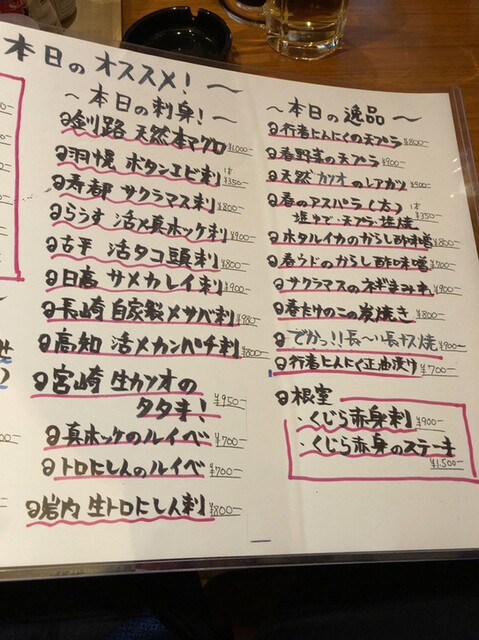 本日のオススメ！〜
〜本日の刺身！〜
釧路 天然本マグロ ¥1,000-
羽幌 ボタンエビ刺 1本 ¥350-
寿都 サクラマス刺 ¥800-
らうす 活〆真ホッケ刺 ¥900-
古平 活タコ頭刺 ¥800-
日高 サメカレイ刺 ¥900-
長崎 自家製〆サバ刺 ¥980-
高知 活〆カンパチ刺 ¥800-
宮崎 生カツオの
タタキ！ ¥950-
真ホッケのルイベ ¥700-
トロにしんのルイベ ¥700-
岩内 生トロにしん刺 ¥800-
〜本日の逸品〜
行者にんにくの天プラ ¥800-
春野菜の天プラ ¥900-
天然カツオのレアカツ ¥900-
春のアスパラ（太） 1本
塩ゆで・天プラ・塩焼 ¥350-
ホタルイカのからし酢味噌 ¥800-
春うドのからし酢味噌 ¥700-
サクラマスのネギまみれ ¥900-
春たけのこの炭焼き ¥800-
でかっ！！長〜い長ナス焼 ¥900-
行者にんにく正油漬け ¥700-
根室
・くじら赤身刺 ¥900-
・くじら赤身のステーキ
¥1,500-